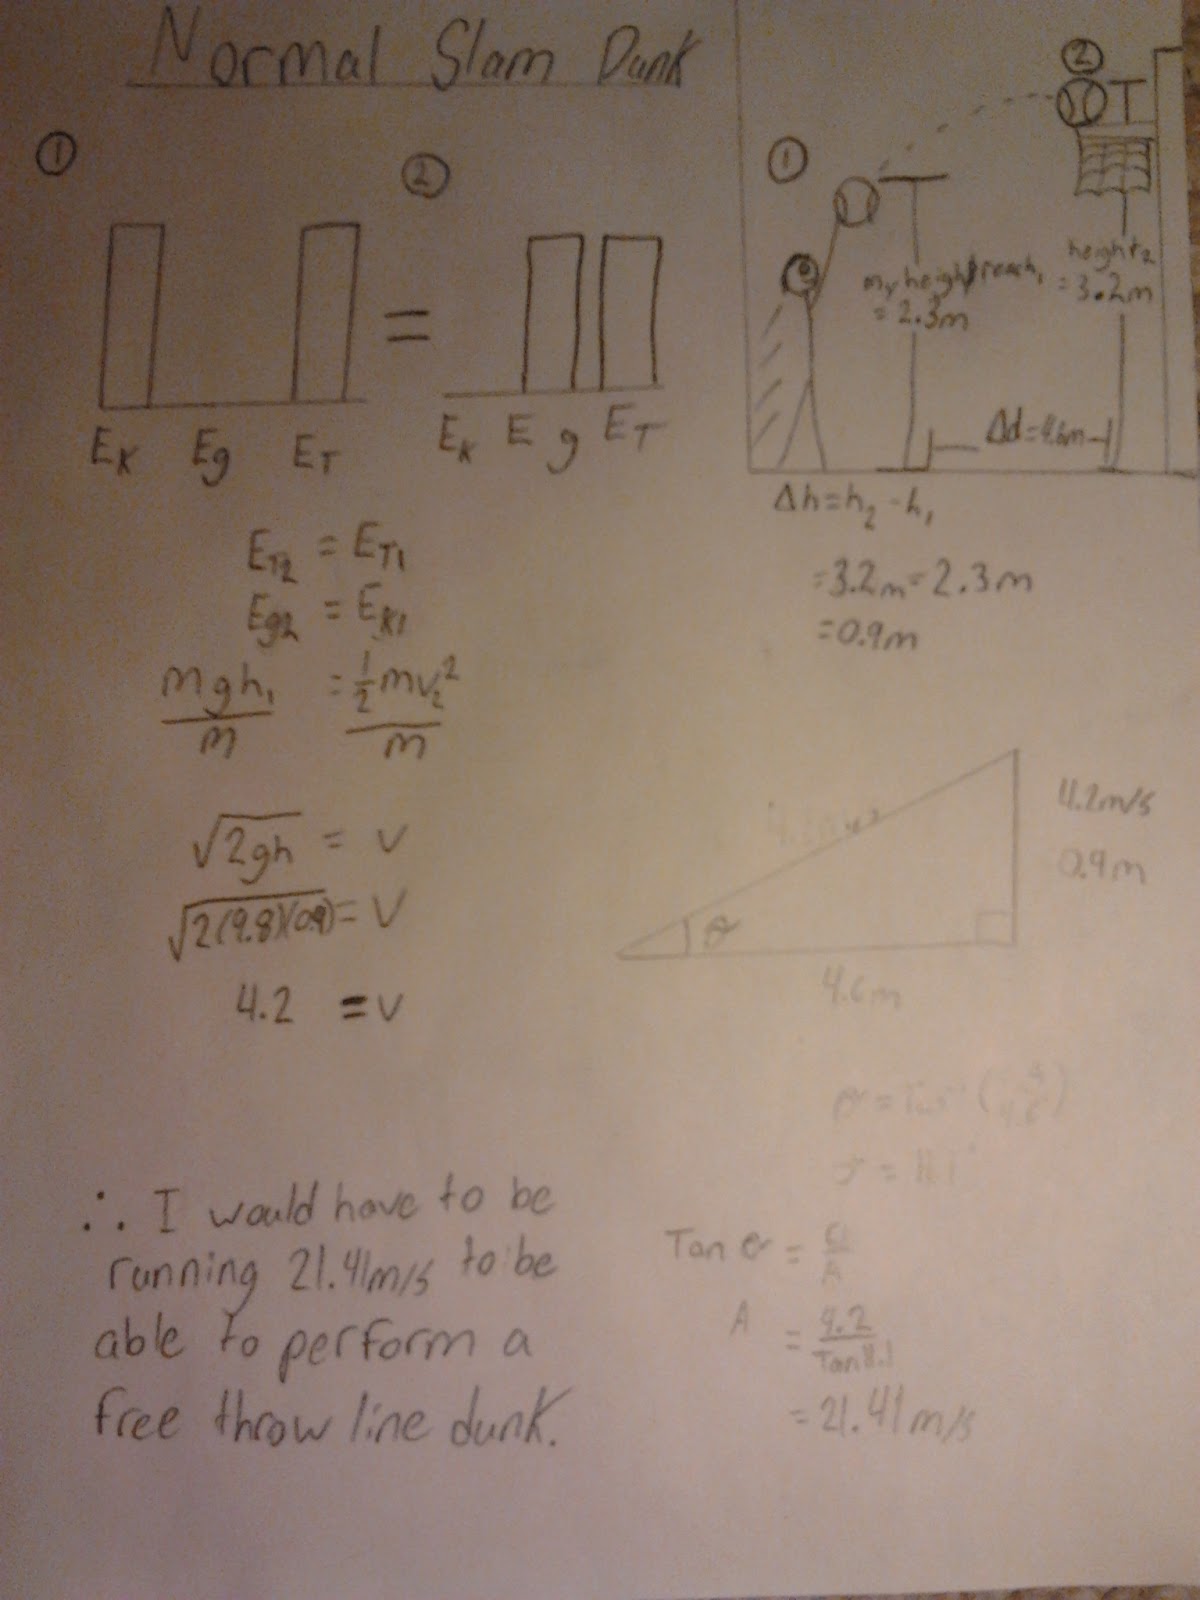 Normal Slam Dunk
①
②
=
EK Eg ET
EK E g ET
ET2 = ET1
Eg2 = EK1
mgh₁ = ½mv₂²
m m
√2gh = v
√2(9.8)(0.9) = v
4.2 = v
∴ I would have to be
running 21.41m/s to be
able to perform a
free throw line dunk.
①
②
my height reach₁
= 2.3m
height₂
= 3.2m
Δd=4.6m
Δh=h₂-h₁
=3.2m-2.3m
=0.9m
4.2m/s
0.9m
θ
4.6m
Tan θ =
A = 4.2
Tan11.1
= 21.41m/s